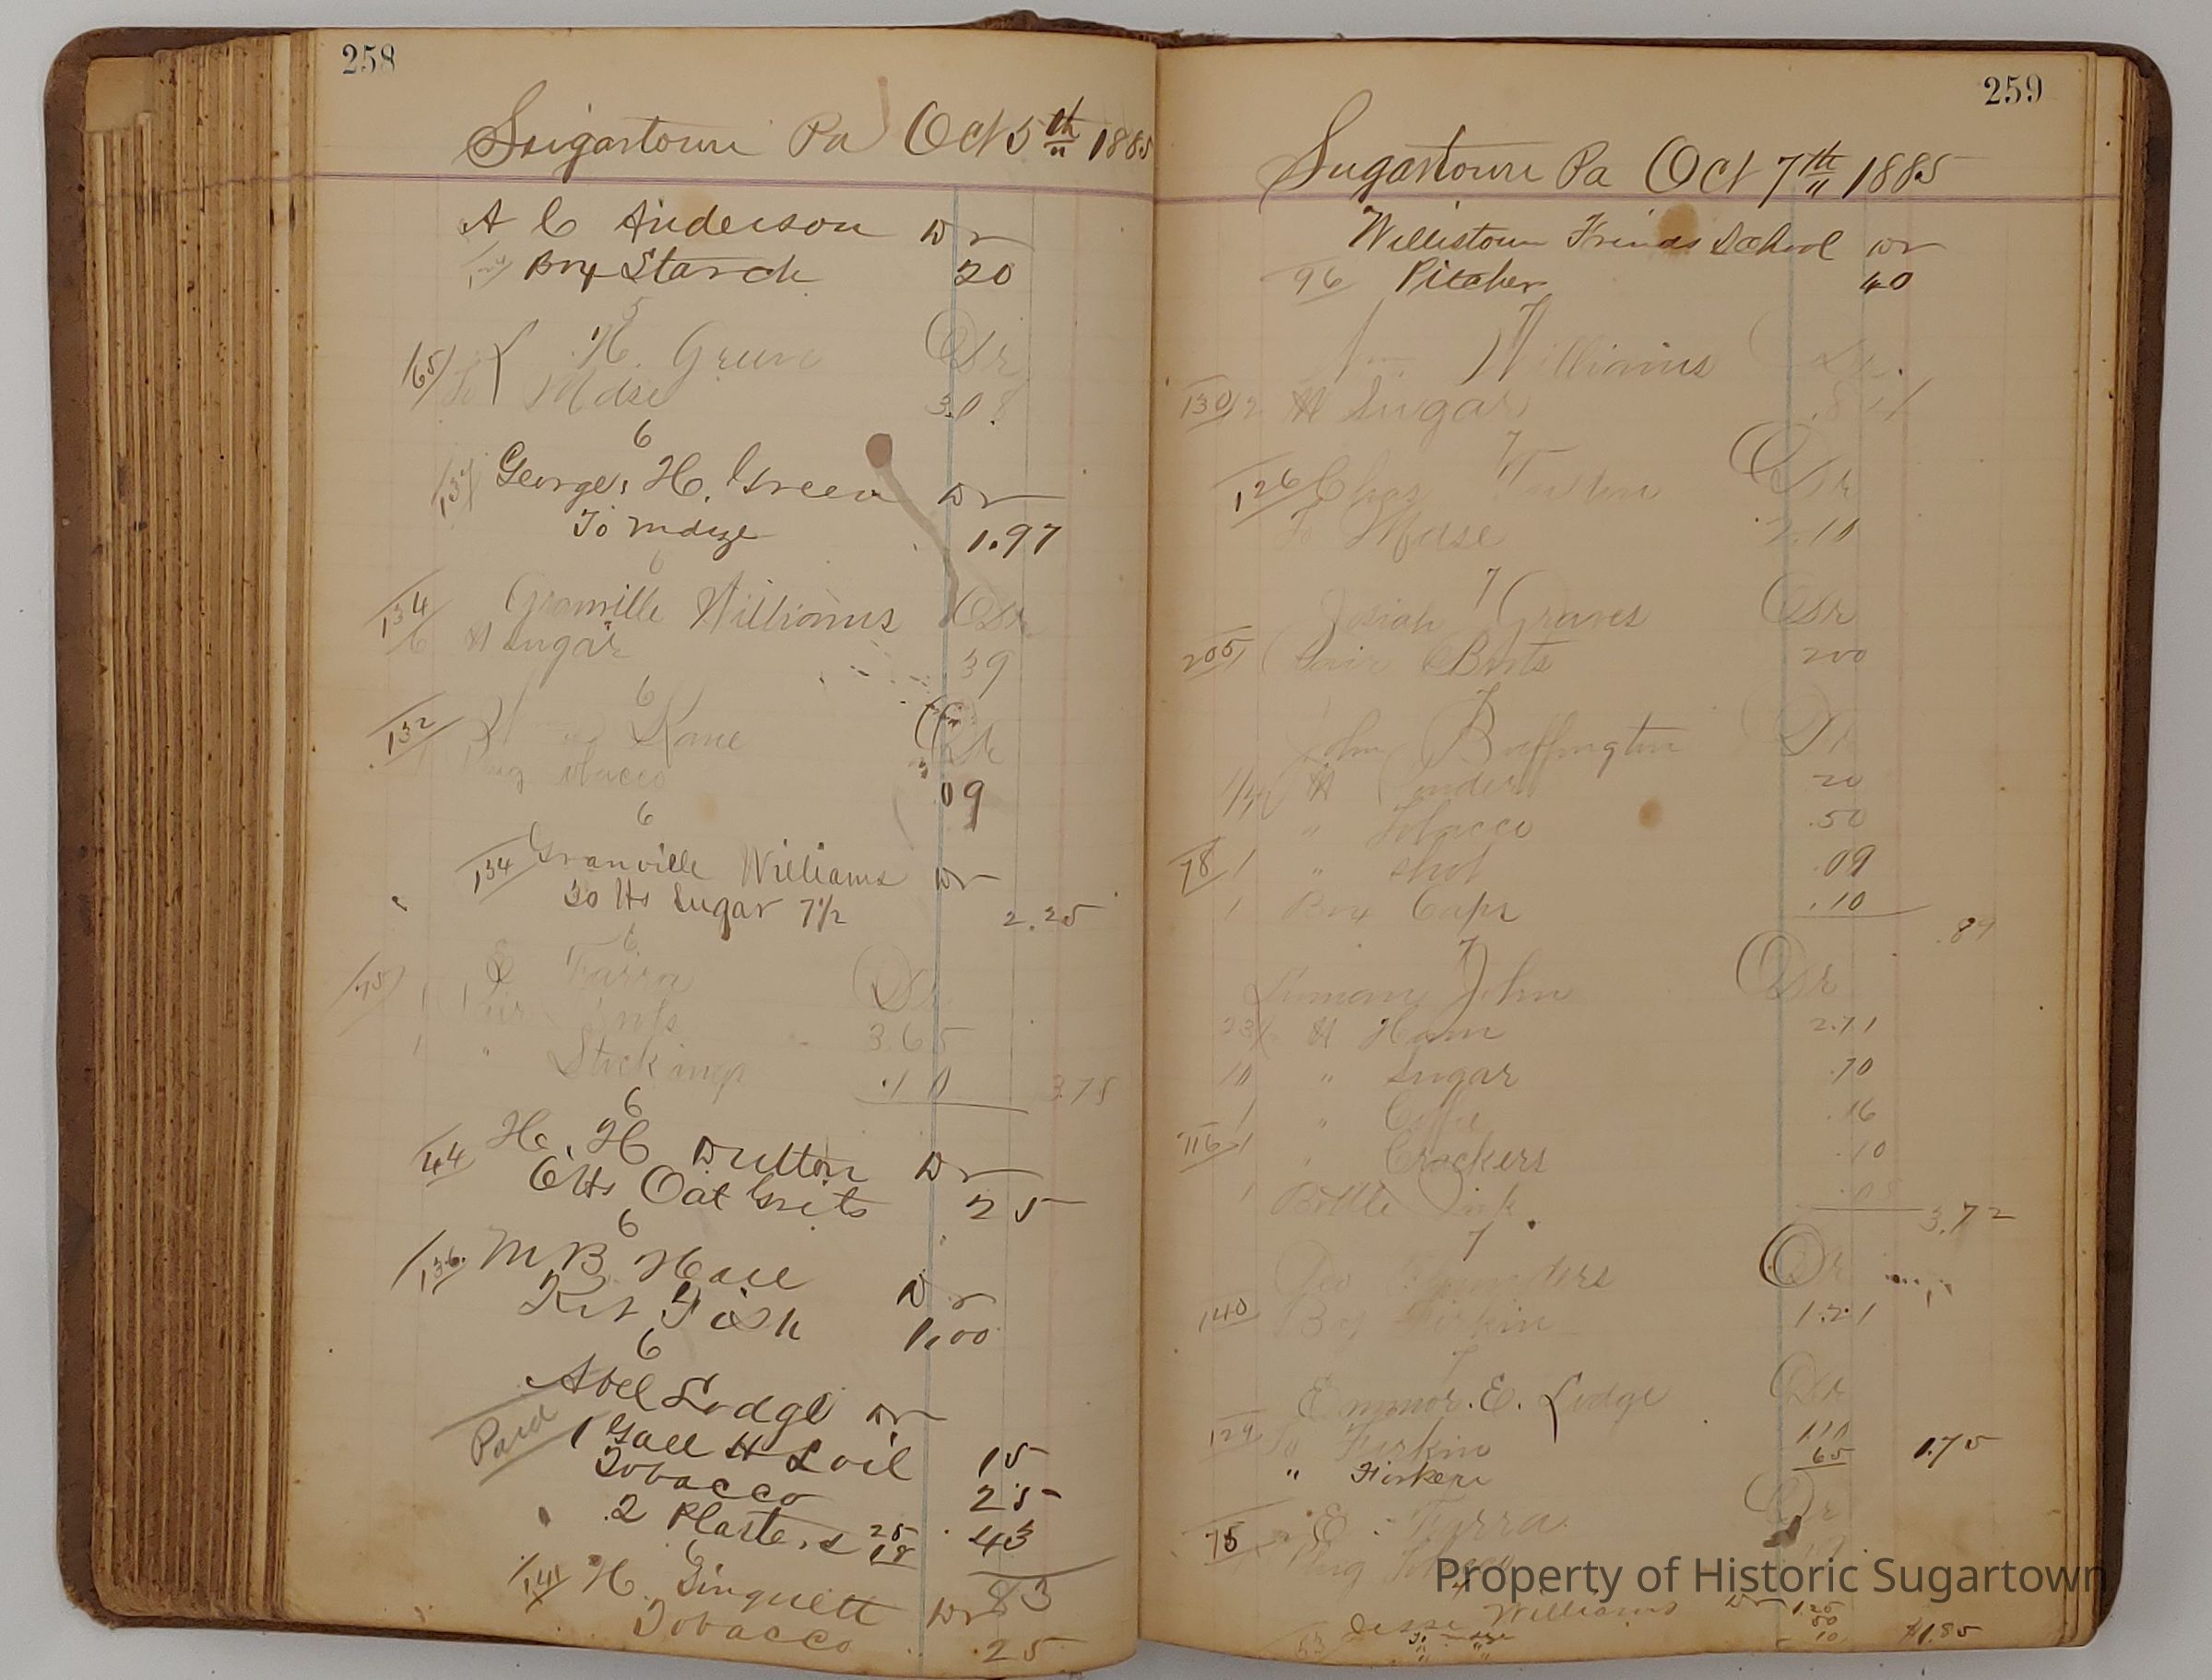 258
Sugartown Pa Oct 5th 1885
A C Anderson Dr
Box Starch 20
5
65 H. Green Dr
To Mdse 3.08
6
137 George H. Green Dr
To mdze 1.97
6
134 Granville Williams Dr
6 # Sugar 39
6
132 Kane Dr
1 Plug Tobacco 09
6
134 Granville Williams Dr
30 lbs Sugar 7½ 2.25
6
75 E Farra Dr
1 Pair 3.65
1 " Stockings .10 3.75
6
44 H. H Dutton Dr
6 lbs Oat Grits 25
6
136 M B Hall Dr
Kit Fish 1.00
6
Abel Lodge Dr
Paid 1 Gall H L oil 15
Tobacco 25
2 Plasters 25 18 43
6 83
141 H. Dr
Tobacco .25
259
Sugartown Pa Oct 7th 1885
Willistown Friends School Dr
96 Pitcher 40
7
Wm Williams Dr.
130 12 # Sugar .84
7
126 Chas Dr
To Mdse 2.10
7
Josiah Graves Dr
205 1 Pair Boots 200
7
John Buffington Dr
# 20
" Tobacco .50
78 1 " Shot .09
1 Box Caps .10
.89
7
Truman John Dr
# Ham 2.71
10 " Sugar .70
1 " Coffee .16
116 1 " Crackers .10
1 Bottle Ink .05
3.72
7
Geo Saunders Dr
140 Firkin 1.21
7
Ennnor. E. Lodge Dr
129 To Firkin 1.10
" Firken 65 1.75
75 E. Farra Dr
Plug Tobacco
Property of Historic Sugartown
Jesse Williams Dr 1.25
50
63 To mdse 10 $1.85